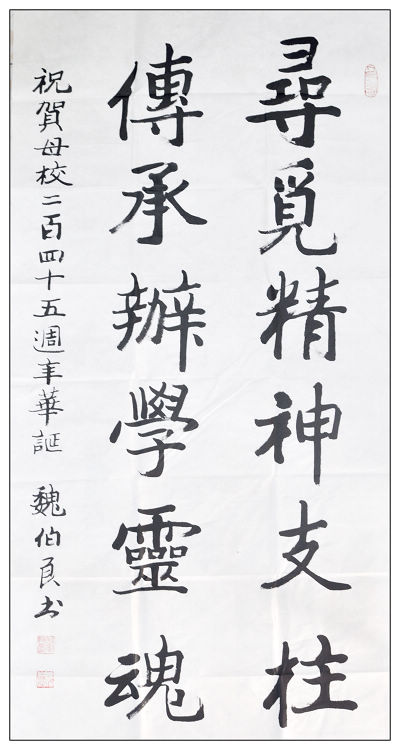 尋覓精神支柱
傳承辦學靈魂
祝賀母校二百四十五週年華誕 魏伯良书